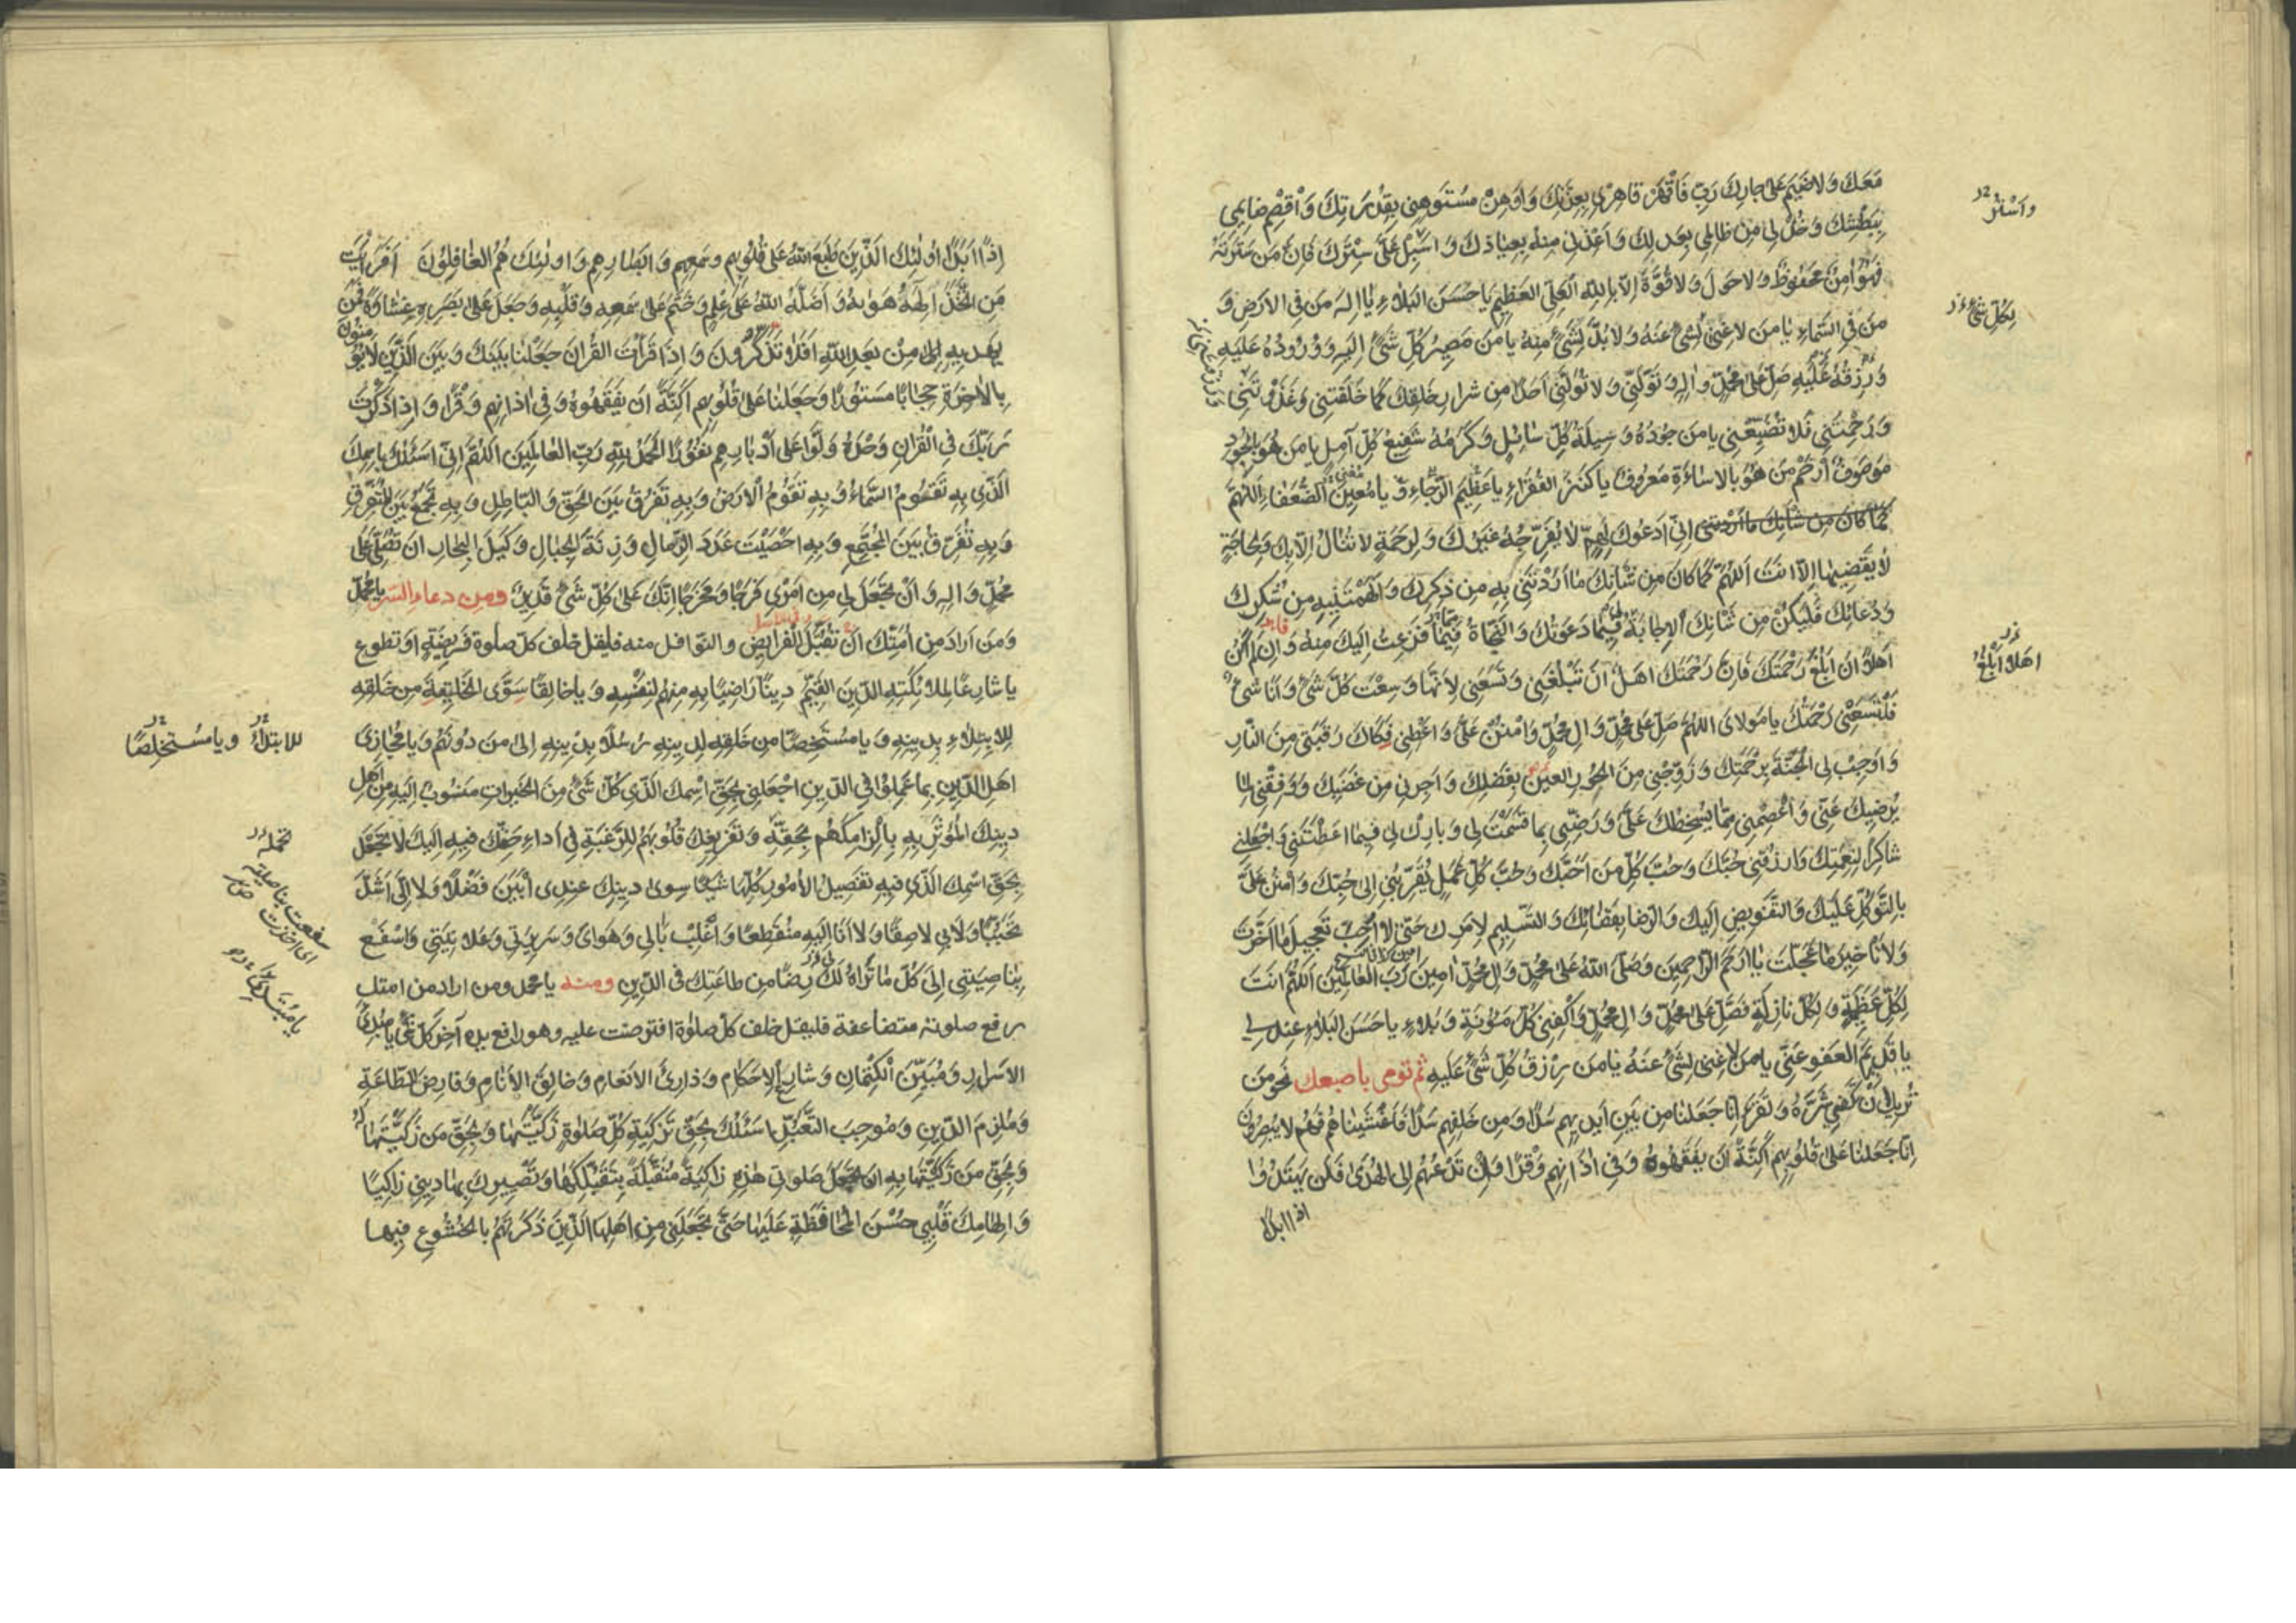 مَعَكَ وَلا ضَيْمَ عَلى جارِكَ رَبِّ فَاقْهَرْ قاهِري بِعِزَّتِكَ وَاَوْهِنْ مُسْتَوْهِني بِقُدْرَتِكَ وَاقْصِمْ ضائِمي
بِبَطْشِكَ وَخُذْ لي مِنْ ظالِمي بِعَدْلِكَ وَاَعِذْني مِنْهُ بِعِياذِكَ وَاسْبِلْ عَلَيَّ سِتْرَكَ فَاِنَّ مَنْ سَتَرْتَهُ
فَهُوَ امِنٌ مَحْفُوظٌ وَلا حَوْلَ وَلا قُوَّةَ اِلّا بِاللهِ الْعَلِيِّ الْعَظيمِ يا حَسَنَ الْبَلاءِ يا اِلهَ مَنْ فِي الْاَرْضِ وَ
مَنْ فِي السَّماءِ يا مَنْ لا غِنى لِشَيْءٍ عَنْهُ وَلا بُدَّ لِشَيْءٍ مِنْهُ يا مَنْ مَصيرُ كُلِّ شَيْءٍ اِلَيْهِ وَوُرُودُهُ عَلَيْهِ
وَرِزْقُهُ عَلَيْهِ صَلِّ عَلى مُحَمَّدٍ وَالِهِ وَتَوَلَّني وَلا تُوَلِّني اَحَدًا مِنْ شِرارِ خَلْقِكَ كَما خَلَقْتَني وَغَذَوْتَني
وَرَحِمْتَني فَلا تُضَيِّعْني يا مَنْ جُودُهُ وَسيلَةُ كُلِّ سائِلٍ وَكَرَمُهُ شَفيعُ كُلِّ آمِلٍ يا مَنْ هُوَ بِالْجُودِ
مَوْصُوفٌ اِرْحَمْ مَنْ هُوَ بِالْاِساءَةِ مَعْرُوفٌ يا كَنْزَ الْفُقَراءِ يا عَظيمَ الرَّجاءِ وَيا مُعينَ الضُّعَفاءِ اَللّهُمَّ
كَما كانَ مِنْ شَأْنِكَ ما اَرَدْتَني اِنّي اَدْعُوكَ لِهَمٍّ لا يُفَرِّجُهُ غَيْرُكَ وَلِرَحْمَةٍ لا تُنالُ اِلّا بِكَ وَلِحاجَةٍ
لا يَقْضيها اِلّا اَنْتَ اَللّهُمَّ كَما كانَ مِنْ شَأْنِكَ ما اَرَدْتَني بِهِ مِنْ ذِكْرِكَ وَاَلْهَمْتَنيهِ مِنْ شُكْرِكَ
وَدُعائِكَ فَلْيَكُنْ مِنْ شَأْنِكَ الْاِجابَةُ لي فيما دَعَوْتُكَ وَالنَّجاةُ فيما فَزِعْتُ اِلَيْكَ مِنْهُ وَاِنْ لَمْ اَكُنْ
اَهْلًا اَنْ اَبْلُغَ رَحْمَتَكَ فَاِنَّ رَحْمَتَكَ اَهْلٌ اَنْ تَبْلُغَني وَتَسَعَني لِاَنَّها وَسِعَتْ كُلَّ شَيْءٍ وَاَنَا شَيْءٌ
فَلْتَسَعْني رَحْمَتُكَ يا مَوْلايَ اللّهُمَّ صَلِّ عَلى مُحَمَّدٍ وَالِ مُحَمَّدٍ وَامْنُنْ عَلَيَّ وَاَعْطِني فَكاكَ رَقَبَتي مِنَ النّارِ
وَاَوْجِبْ لِيَ الْجَنَّةَ بِرَحْمَتِكَ وَزَوِّجْني مِنَ الْحُورِ الْعينِ بِفَضْلِكَ وَاَجِرْني مِنْ غَضَبِكَ وَوَفِّقْني لِما
يُرْضيكَ عَنّي وَاعْصِمْني مِمّا يُسْخِطُكَ عَلَيَّ وَرَضِّني بِما قَسَمْتَ لي وَبارِكْ لي فيما اَعْطَيْتَني وَاجْعَلْني
شاكِرًا لِنِعْمَتِكَ وَارْزُقْني حُبَّكَ وَحُبَّ كُلِّ مَنْ اَحَبَّكَ وَحُبَّ كُلِّ عَمَلٍ يُقَرِّبُني اِلى حُبِّكَ وَامْنُنْ عَلَيَّ
بِالتَّوَكُّلِ عَلَيْكَ وَالتَّفْويضِ اِلَيْكَ وَالرِّضا بِقَضائِكَ وَالتَّسْليمِ لِاَمْرِكَ حَتّى لا اُحِبَّ تَعْجيلَ ما اَخَّرْتَ
وَلا تَأْخيرَ ما عَجَّلْتَ يا اَرْحَمَ الرّاحِمينَ وَصَلَّى اللهُ عَلى مُحَمَّدٍ وَالِ مُحَمَّدٍ امينَ رَبَّ الْعالَمينَ اَللّهُمَّ اَنْتَ
لِكُلِّ عَظيمَةٍ وَلِكُلِّ نازِلَةٍ فَصَلِّ عَلى مُحَمَّدٍ وَالِ مُحَمَّدٍ وَاكْفِني كُلَّ مَؤُنَةٍ وَبَلاءٍ يا حَسَنَ الْبَلاءِ عِنْدي
يا قَديمَ الْعَفْوِ عَنّي يا مَنْ لا غِنى لِشَيْءٍ عَنْهُ يا مَنْ رِزْقُ كُلِّ شَيْءٍ عَلَيْهِ ثم تومى باصبعك نَحْوَ مَنْ
تُريدُ اَنْ تُكْفى شَرَّهُ وَتَقْرَءُ اِنّا جَعَلْنا مِنْ بَيْنِ اَيْديهِمْ سَدًّا وَمِنْ خَلْفِهِمْ سَدًّا فَاَغْشَيْناهُمْ فَهُمْ لا يُبْصِرُونَ
اِنّا جَعَلْنا عَلى قُلُوبِهِمْ اَكِنَّةً اَنْ يَفْقَهُوهُ وَفي اذانِهِمْ وَقْرًا وَاِنْ تَدْعُهُمْ اِلَى الْهُدى فَلَنْ يَهْتَدُوا
اذا ابدا
واَسْتُرْ
لِكُلِّ شَيْءٍ
اهلا اَبْلُغُ
اِذًا اَبَدًا اُولئِكَ الَّذينَ طَبَعَ اللهُ عَلى قُلُوبِهِمْ وَسَمْعِهِمْ وَاَبْصارِهِمْ وَاُولئِكَ هُمُ الْغافِلُونَ اَفَرَاَيْتَ
مَنِ اتَّخَذَ اِلهَهُ هَواهُ وَاَضَلَّهُ اللهُ عَلى عِلْمٍ وَخَتَمَ عَلى سَمْعِهِ وَقَلْبِهِ وَجَعَلَ عَلى بَصَرِهِ غِشاوَةً فَمَنْ
يَهْديهِ مِنْ بَعْدِ اللهِ اَفَلا تَذَكَّرُونَ وَاِذا قَرَأْتَ الْقُرانَ جَعَلْنا بَيْنَكَ وَبَيْنَ الَّذينَ لا يُؤْمِنُونَ
بِالْاخِرَةِ حِجابًا مَسْتُورًا وَجَعَلْنا عَلى قُلُوبِهِمْ اَكِنَّةً اَنْ يَفْقَهُوهُ وَفي اذانِهِمْ وَقْرًا وَاِذا ذَكَرْتَ
رَبَّكَ فِي الْقُرانِ وَحْدَهُ وَلَّوْا عَلى اَدْبارِهِمْ نُفُورًا الْحَمْدُ لِلّهِ رَبِّ الْعالَمينَ اَللّهُمَّ اِنّي اَسْئَلُكَ بِاسْمِكَ
الَّذي بِهِ تَقُومُ السَّماءُ وَبِهِ تَقُومُ الْاَرْضُ وَبِهِ تَفْرُقُ بَيْنَ الْحَقِّ وَالْباطِلِ وَبِهِ تَجْمَعُ بَيْنَ الْمُتَفَرِّقِ
وَبِهِ تُفَرِّقُ بَيْنَ الْمُجْتَمِعِ وَبِهِ اَحْصَيْتَ عَدَدَ الرِّمالِ وَزِنَةَ الْجِبالِ وَكَيْلَ الْبِحارِ اَنْ تُصَلِّيَ عَلى
مُحَمَّدٍ وَالِهِ وَاَنْ تَجْعَلَ لي مِنْ اَمْري فَرَجًا وَمَخْرَجًا اِنَّكَ عَلى كُلِّ شَيْءٍ قَديرٌ ومن دعاء السر يا مُحَمَّدُ
وَمَنْ اَرادَ مِنْ اُمَّتِكَ اَنْ تُقْبَلَ الْفَرائِضُ والنوافل منه فليقل خلف كل صلوة فَريضَةٍ اَوْ تطوع
يا شارِعًا لِمَلائِكَتِهِ الدّينَ الْقَيِّمَ دينًا راضِيًا بِهِ مِنْهُمْ لِنَفْسِهِ وَيا خالِقًا سِوَى الْخَليقَةِ مِنْ خَلْقِهِ
لِلْاِبْتِلاءِ بِدينِهِ وَيا مُسْتَخِصًّا مِنْ خَلْقِهِ لِدينِهِ رُسُلًا بِدينِهِ اِلى مَنْ دُونَهُمْ وَيا مُجازِيَ
اَهْلِ الدّينِ بِما عَمِلُوا فِي الدّينِ اجْعَلْني بِحَقِّ اسْمِكَ الَّذي كُلُّ شَيْءٍ مِنَ الْخَيْراتِ مَنْسُوبٌ اِلَيْهِ مِنْ اَهْلِ
دينِكَ الْمُؤْثَرِ بِهِ بِاِلْزامِكَهُمْ بِحَقِّهِ وَتَفْريغِكَ قُلُوبَهُمْ لِلرَّغْبَةِ في اَداءِ حَقِّكَ فيهِ اِلَيْكَ لا تَجْعَلْ
بِحَقِّ اسْمِكَ الَّذي فيهِ تَفْصيلُ الْاُمُورِ كُلِّها شَيْئًا سِوى دينِكَ عِنْدي اَبْيَنَ فَضْلًا وَلا اِلَيَّ اَشَدَّ
تَحَبُّبًا وَلا بي لاصِقًا وَلا اَنَا اِلَيْهِ مُنْقَطِعًا وَاَغْلِبْ بالي وَهَوايَ وَسَريرَتي وَعَلانِيَتي وَاسْفَعْ
بِناصِيَتي اِلى كُلِّ ما تَراهُ لَكَ رِضًا مِنْ طاعَتِكَ فِي الدّينِ ومنه يا محمد ومن اراد من امتك
رفع صلوته متضاعفة فليقل خلف كل صلوة افترضت عليه وهو رافع يده آخِرَ كُلِّ شَيْءٍ يا مُبْدِئَ
الْاَسْرارِ وَمُبَيِّنَ الْكِتْمانِ وَشارِعَ الْاَحْكامِ وَذارِئَ الْاَنْعامِ وَخالِقَ الْاَنامِ وَفارِضَ الطّاعَةِ
وَمُلْزِمَ الدّينِ وَمُوجِبَ التَّعَبُّدِ اَسْئَلُكَ بِحَقِّ تَزْكِيَةِ كُلِّ صَلوةٍ زَكَّيْتَها وَبِحَقِّ مَنْ زَكَّيْتَها لَهُ
وَبِحَقِّ مَنْ زَكَّيْتَها بِهِ اَنْ تَجْعَلَ صَلوتي هذِهِ زاكِيَةً مُتَقَبَّلَةً بِتَقَبُّلِكَها وَتَصْييرِكَ بِها ديني زاكِيًا
وَاِلْهامِكَ قَلْبي حُسْنَ الْمُحافَظَةِ عَلَيْها حَتّى تَجْعَلَني مِنْ اَهْلِهَا الَّذينَ ذَكَرْتَهُمْ بِالْخُشُوعِ فيها
للابتلاء ويا مُسْتَخْلِصًا
سفعت بناصيته
اى اخذت